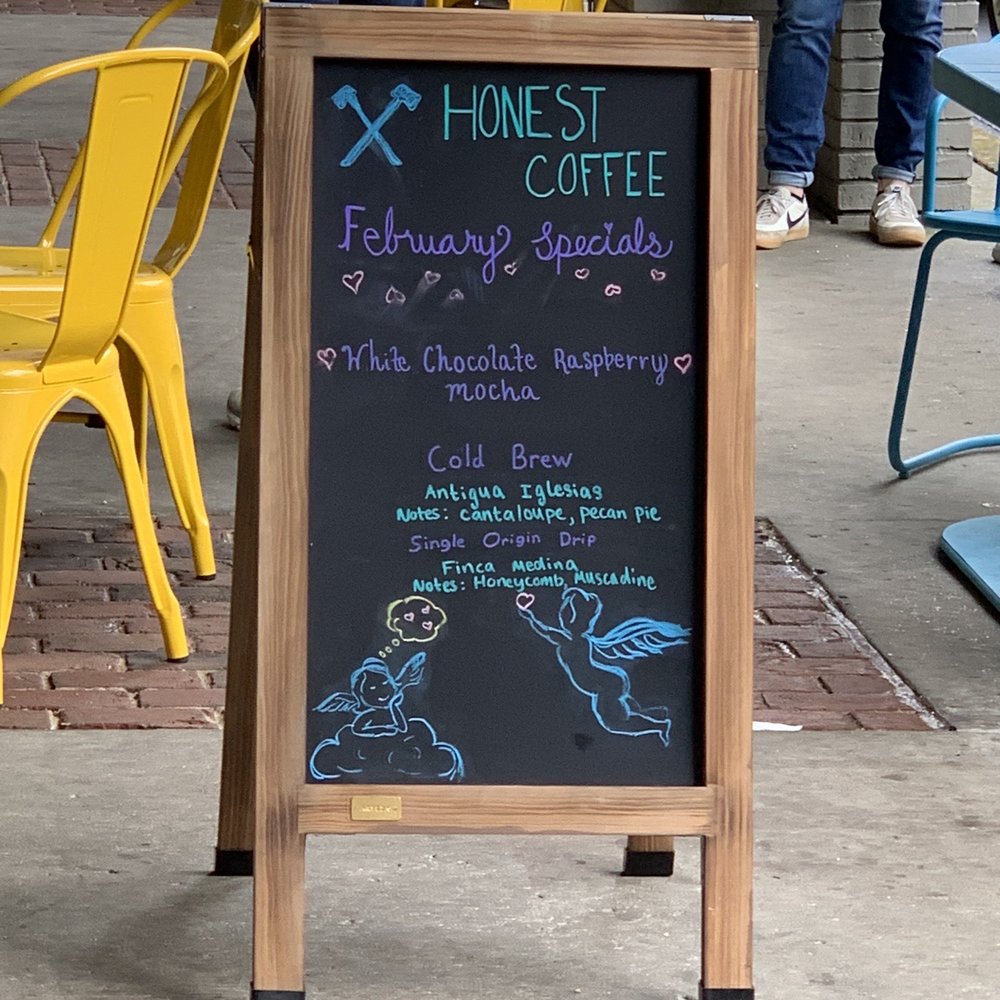 HONEST
COFFEE
February Specials
White Chocolate Raspberry
mocha
Cold Brew
Antigua Iglesias
Notes: cantaloupe, pecan pie
Single Origin Drip
Finca Medina
Notes: Honeycomb, Muscadine